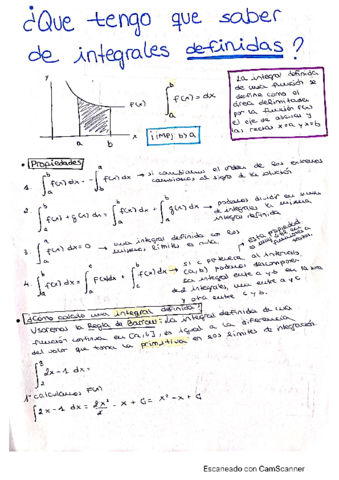 ¿Que tengo que saber
de integrales definidas?
y
f(x)
a b x
∫ₐᵇ f(x) = dx
¡¡IMP¡ b>a
La integral definida
de una función se
define como el
área delimitada
por la función f(x)
el eje de abscisas y
las rectas x=a y x=b
• Propiedades
1. ∫ₐᵇ f(x) dx = -∫ f(x) dx → si cambiamos el orden de los extremos
cambiamos el signo de la solución
2. ∫ₐᵇ f(x) + g(x) dx = ∫ₐᵇ f(x) dx + ∫ₐᵇ g(x) dx → podemos dividir en sumas
de integrales la misma
integral definida
3. ∫ f(x) dx = 0 → una integral definida con los
mismos límites es nula
esta propiedad
4. ∫ₐᵇ f(x) dx = ∫ₐᶜ f(x) dx + ∫ f(x) dx → si c pertenece al intervalo
(a,b) podemos descomponer
esa integral entre a y b en la suma
de 2 integrales, una entre a y c
y otra entre c y b.
• ¿Cómo calculo una integral definida?
Usaremos la Regla de Barrow: La integral definida de una
función continua en [a,b], es igual a la diferencia
del valor que toma la primitiva en los límites de integración.
∫ 2x - 1 dx =
1º calculamos F(x)
∫ 2x - 1 dx = 2x²/2 - x + C = x² - x + C
Escaneado con CamScanner